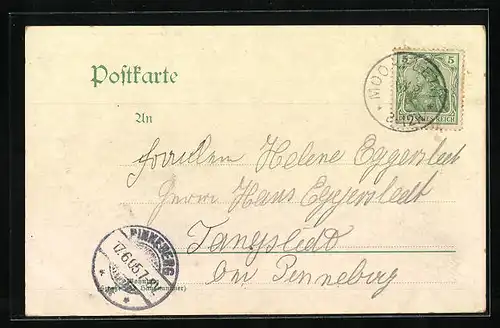 Postkarte
5 5
DEUTSCHES REICH
An
Fräulein Helene Eggerstedt
Herrn Hans Eggerstedt
Tangstedt
bei Pinneberg
PINNEBERG
17.6.05.7-8